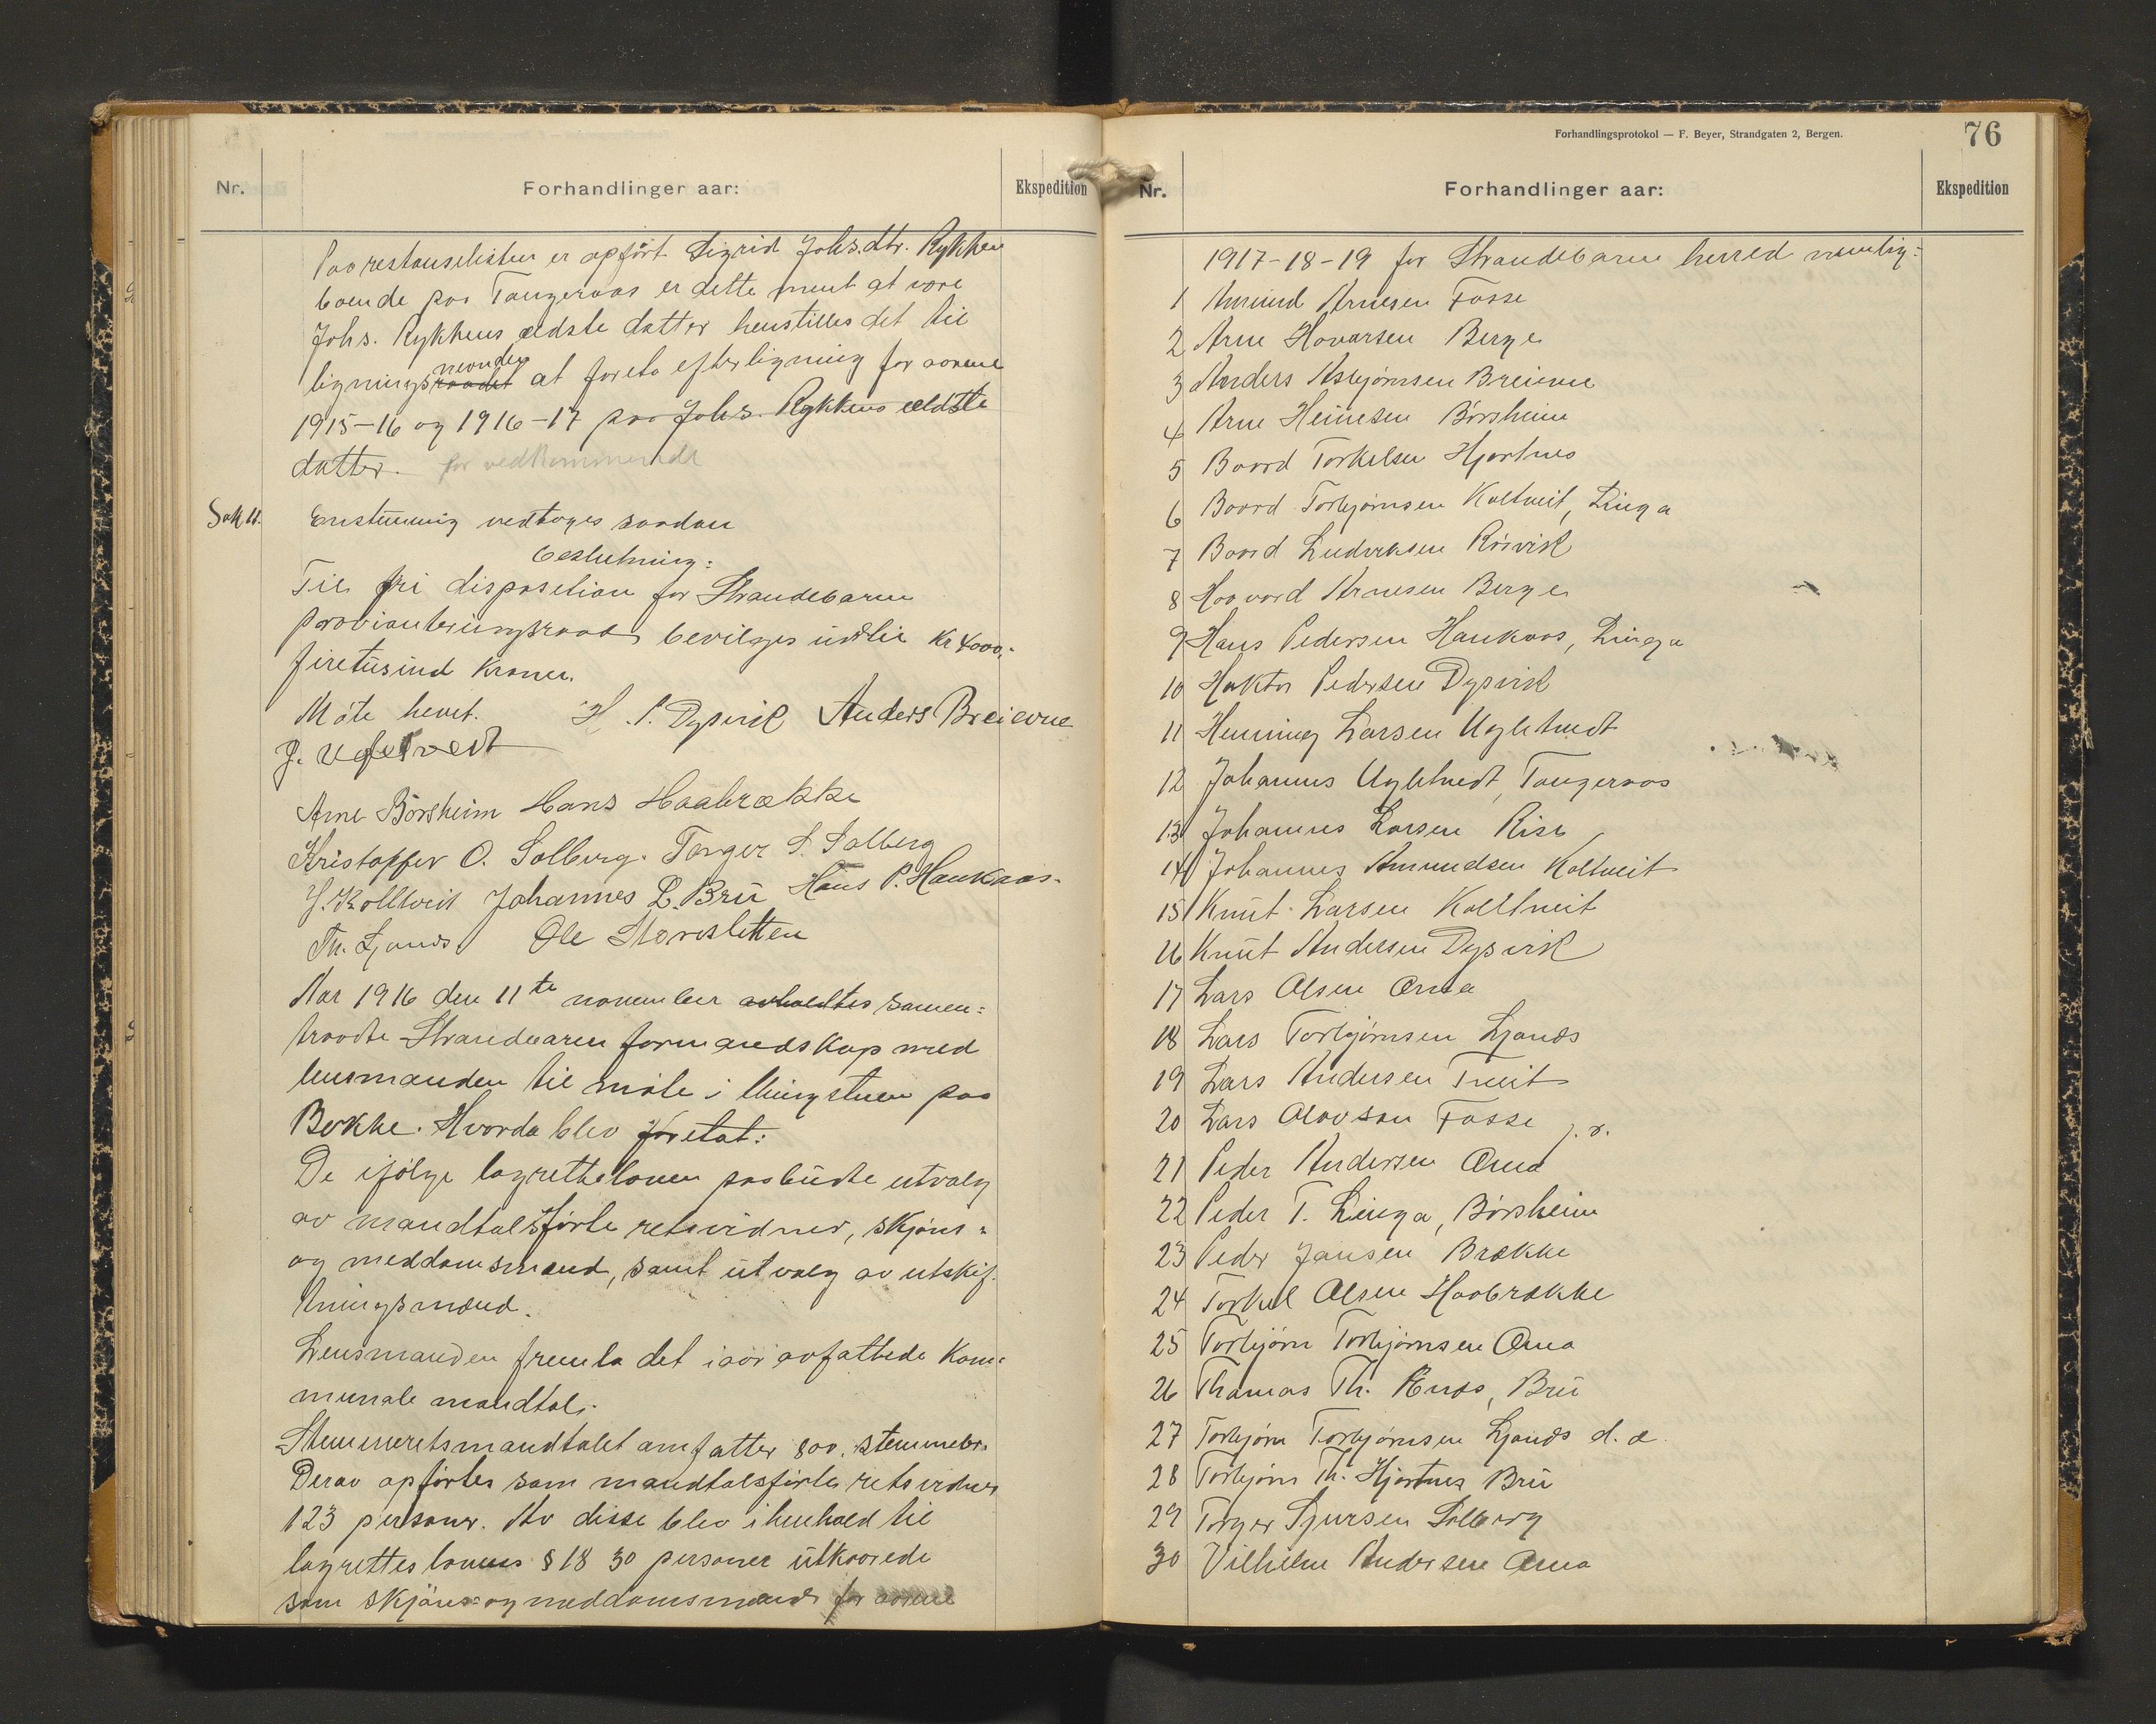 Nr.
Forhandlinger aar:
Ekspedition
Paa restanselisten er opført Sigrid Johs.dtr. Rykken
boende paa Tangeraas er dette ment at være
Johs. Rykkens ældste datter henstilles det til
ligningsraadet nevnden at foreta efterligning for aarene
1915-16 og 1916-17 paa Johs. Rykkens ældste
datter. for vedkommende
Sak 11. Enstemmig vedtoges saadan
beslutning:
Til fri disposition for Strandebarm
provianteringsraad bevilges indtil Kr 4000,-
firetusind kroner.
Møte hevet. H. P. Dysvik Anders Breievne
J. Ugletvedt
Arne Børsheim Hans Haabrække
Kristoffer O. Solberg. Torger S. Solberg
J. Kolltveit Johannes L. Bru Hans P. Haukaas.
Th. Ljones Ole Storesletten
Aar 1916 den 11te november avholdtes samen=
traadte Strandebarm formandskap med
lensmanden til møte i thingstuen paa
Bekke. Hvorda blev foretat:
De ifølge lagretteloven paabudte utvalg
av mandtalsførte retsvidner, skjøns=
og meddomsmænd, samt utvalg av utskif=
tningsmænd.
Lensmanden fremla det iaar avfattede kom=
munale mandtal.
Stemmeretsmandtalet omfatter 800. stemmeber.
Derav opførtes som mandtalsførte retsvidner
123 personer. Av disse blev i henhold til
lagrettes lovens § 18 30 personer utkaarede
som skjøns= og meddomsmænd for aarene
Forhandlingsprotokol — F. Beyer, Strandgaten 2, Bergen.
76
Nr.
Forhandlinger aar:
Ekspedition
1917-18-19 for Strandebarm herred nemlig:
1 Amund Arnesen Fosse
2 Arne Havarsen Berge
3 Anders Asbjørnsen Breievne
4 Arne Heinesen Børsheim
5 Baard Torkelsen Hjartnes
6 Baard Torbjørnsen Koltveit, Linga
7 Baard Ludveksen Røsvik
8 Haavard Arnesen Berge
9 Hans Pedersen Haukaas, Linga
10 Haktor Pedersen Dysvik
11 Henning Larsen Ugletvedt
12 Johannes Ugletvedt, Tangeraas
13 Johannes Larsen Rise
14 Johannes Amundsen Koltveit
15 Knut Larsen Kolltveit
16 Knut Andersen Dysvik
17 Lars Olsen Oma
18 Lars Torbjørnsen Ljones
19 Lars Andersen Tveit
20 Lars Olavson Fosse j.r.
21 Peder Andersen Oma
22 Peder T. Linga, Børsheim
23 Peder Jansen Brække
24 Torkel Olsen Haabrække
25 Torbjørn Torbjørnsen Oma
26 Thomas Th. Ænes, Bru
27 Torbjørn Torbjørnsen Ljones d.æ.
28 Torbjørn Th. Hjartnes Bru
29 Torger Sjursen Solberg
30 Vilhelm Andersen Oma